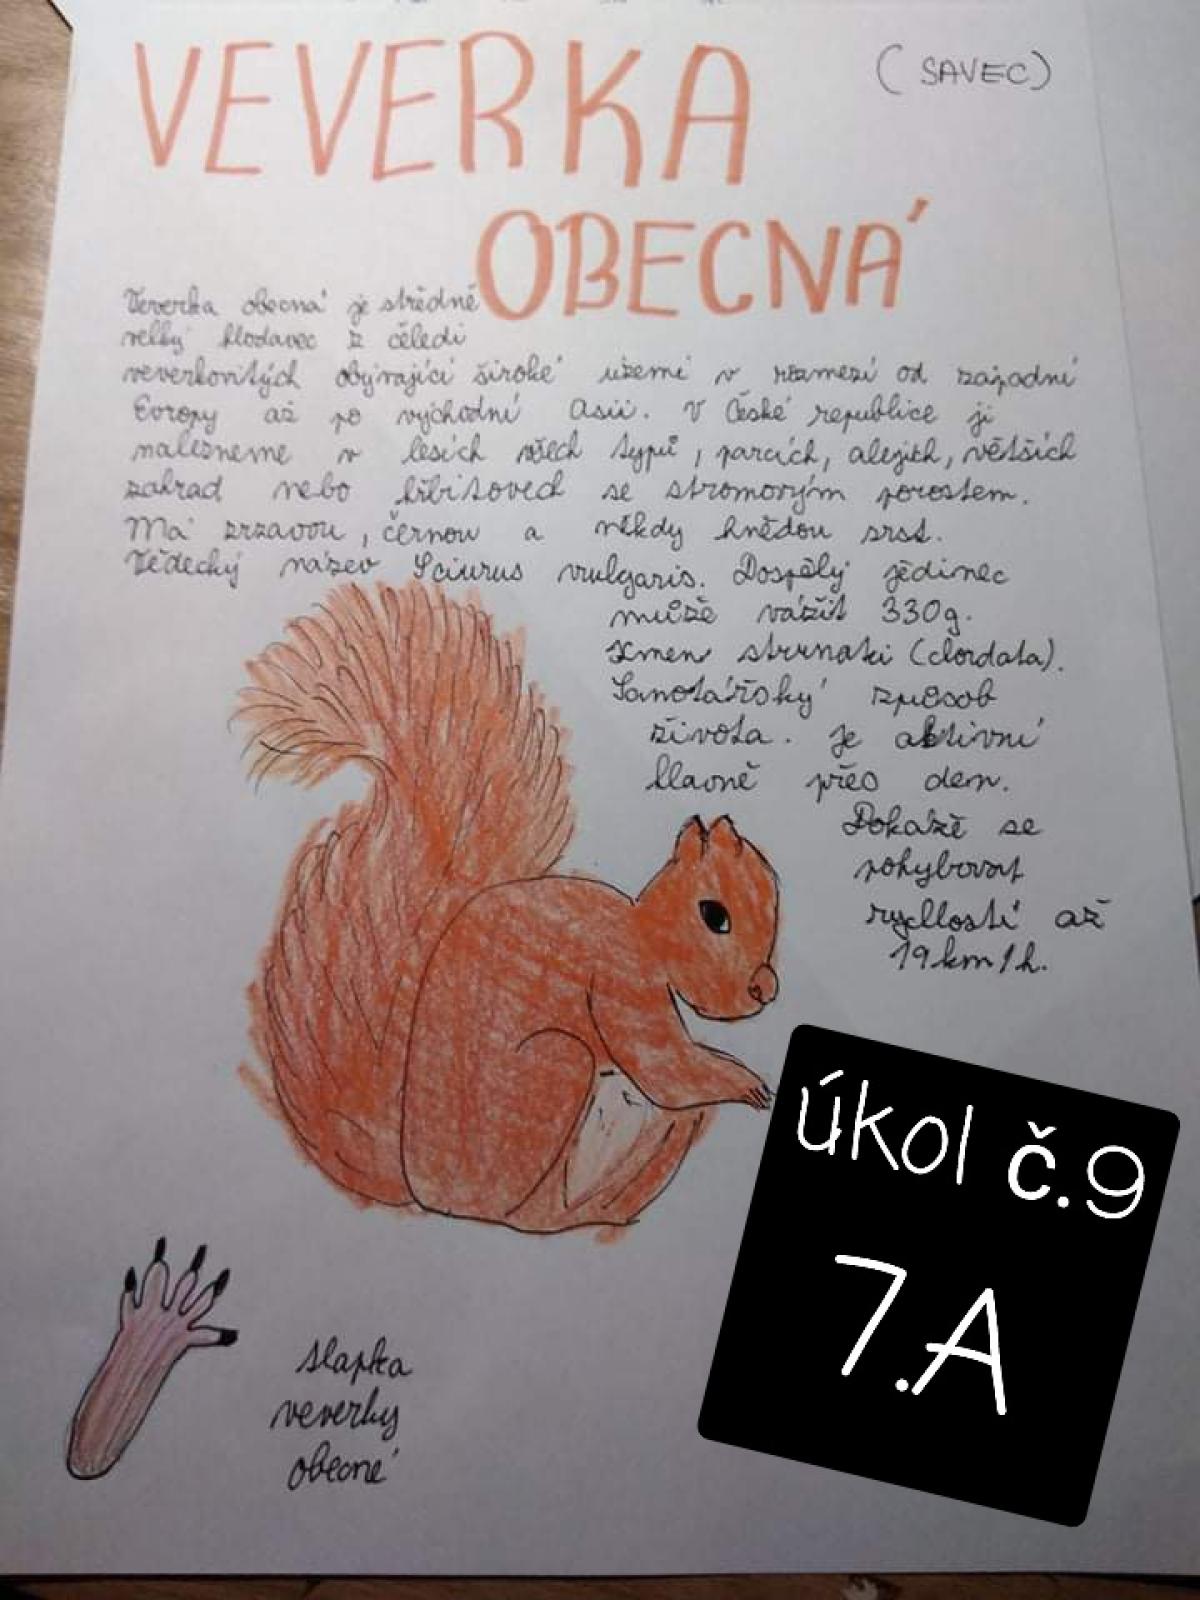 VEVERKA
(SAVEC)
OBECNÁ
Veverka obecná je střédně
velký hlodavec z čéledi
veverkovitých obývající široké území v rozmezí od západní
Evropy až po východní Asii. V České republice ji
nalezneme v lesích všech typů, parcích, alejích, větších
zahrad nebo hřbitovech se stromovým porostem.
Má zrzavou, černou a někdy hnědou srst.
Vědecký název Sciurus vulgaris. Dospělý jedinec
může vážit 330g.
Kmen strunatci (chordata).
Samotářský způsob
života. Je aktivní
hlavně přes den.
Dokáže se
pohybovat
rychlostí až
19km/h.
úkol č.9
7.A
slapka
veverky
obecné